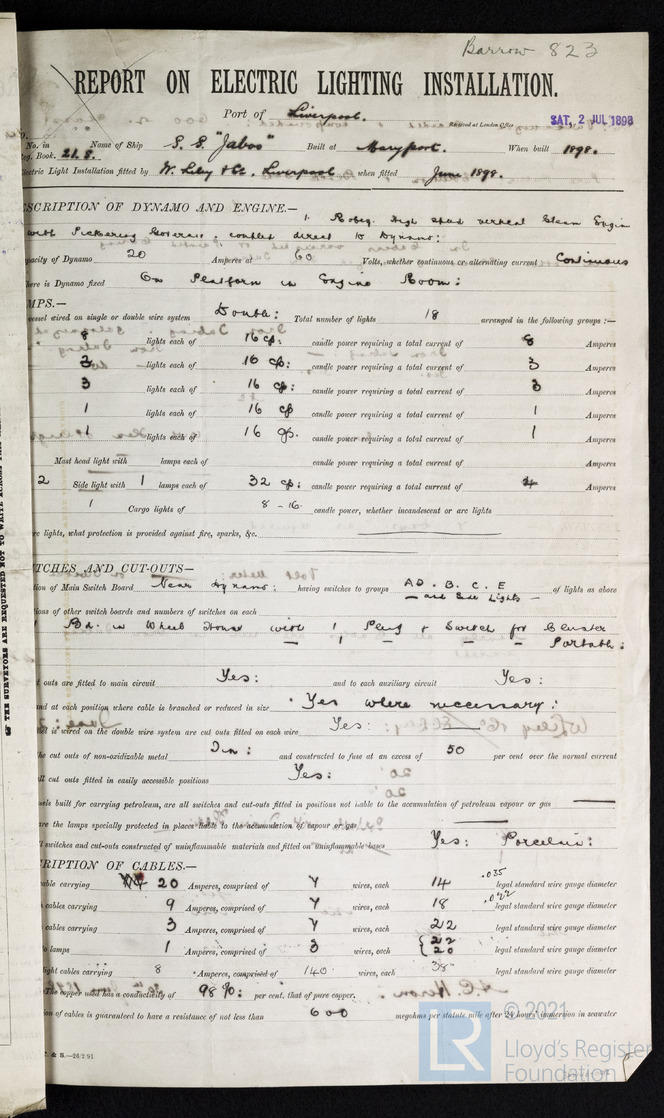 Barrow 823
REPORT ON ELECTRIC LIGHTING INSTALLATION.
Port of Liverpool.
Received at London Office SAT. 2 JUL 1898
No. in Name of Ship S.S. "Jabos" Built at Maryport. When built 1898.
Reg. Book. 21.S.
Electric Light Installation fitted by W. Liley & Co, Liverpool when fitted June 1898.
DESCRIPTION OF DYNAMO AND ENGINE.—
1. Robey. High speed vertical Steam Engine
with Pickering Governor, coupled direct to Dynamo:
Capacity of Dynamo 20 Amperes at 60 Volts, whether continuous or alternating current Continuous
Where is Dynamo fixed On Platform in Engine Room:
LAMPS.—
vessel wired on single or double wire system Double: Total number of lights 18 arranged in the following groups :—
8 lights each of 16 cp: candle power requiring a total current of 8 Amperes
3 lights each of 16 cp: candle power requiring a total current of 3 Amperes
3 lights each of 16 cp: candle power requiring a total current of 3 Amperes
1 lights each of 16 cp candle power requiring a total current of 1 Amperes
1 lights each of 16 cp. candle power requiring a total current of 1 Amperes
Mast head light with lamps each of candle power requiring a total current of Amperes
2 Side light with 1 lamps each of 32 cp: candle power requiring a total current of 4 Amperes
1 Cargo lights of 8 - 16 candle power, whether incandescent or arc lights
arc lights, what protection is provided against fire, sparks, &c.
SWITCHES AND CUT-OUTS—
Position of Main Switch Board Near Dynamo: having switches to groups AD. B. C. E of lights as above
— and Side Lights —
positions of other switch boards and numbers of switches on each
1 Bd. in Wheel House with 1 Plug & Switch for Cluster
— 1 — — Portable:
cut outs are fitted to main circuit Yes: and to each auxiliary circuit Yes:
and at each position where cable is branched or reduced in size Yes where necessary:
vessel is wired on the double wire system are cut outs fitted on each wire Yes:
the cut outs of non-oxidizable metal Tin: and constructed to fuse at an excess of 50 per cent over the normal current
all cut outs fitted in easily accessible positions Yes:
vessels built for carrying petroleum, are all switches and cut-outs fitted in positions not liable to the accumulation of petroleum vapour or gas —
are the lamps specially protected in places liable to the accumulation of vapour or gas —
all switches and cut-outs constructed of uninflammable materials and fitted on uninflammable bases Yes: Porcelain:
DESCRIPTION OF CABLES.—
cable carrying 20 Amperes, comprised of 7 wires, each 14 .035 legal standard wire gauge diameter
cables carrying 9 Amperes, comprised of 7 wires, each 18 .022 legal standard wire gauge diameter
cables carrying 3 Amperes, comprised of 7 wires, each 22 legal standard wire gauge diameter
to lamps 1 Amperes, comprised of 3 wires, each { 22 20 legal standard wire gauge diameter
light cables carrying 8 Amperes, comprised of 140 wires, each 38 legal standard wire gauge diameter
The copper used has a conductivity of 98 %: per cent. that of pure copper.
of cables is guaranteed to have a resistance of not less than 600 megohms per statute mile after 24 hours' immersion in seawater
& S.—24/2 91
© 2021
LR Lloyd's Register
Foundation
OF THE SURVEYORS ARE REQUESTED NOT TO WRITE ACROSS THE